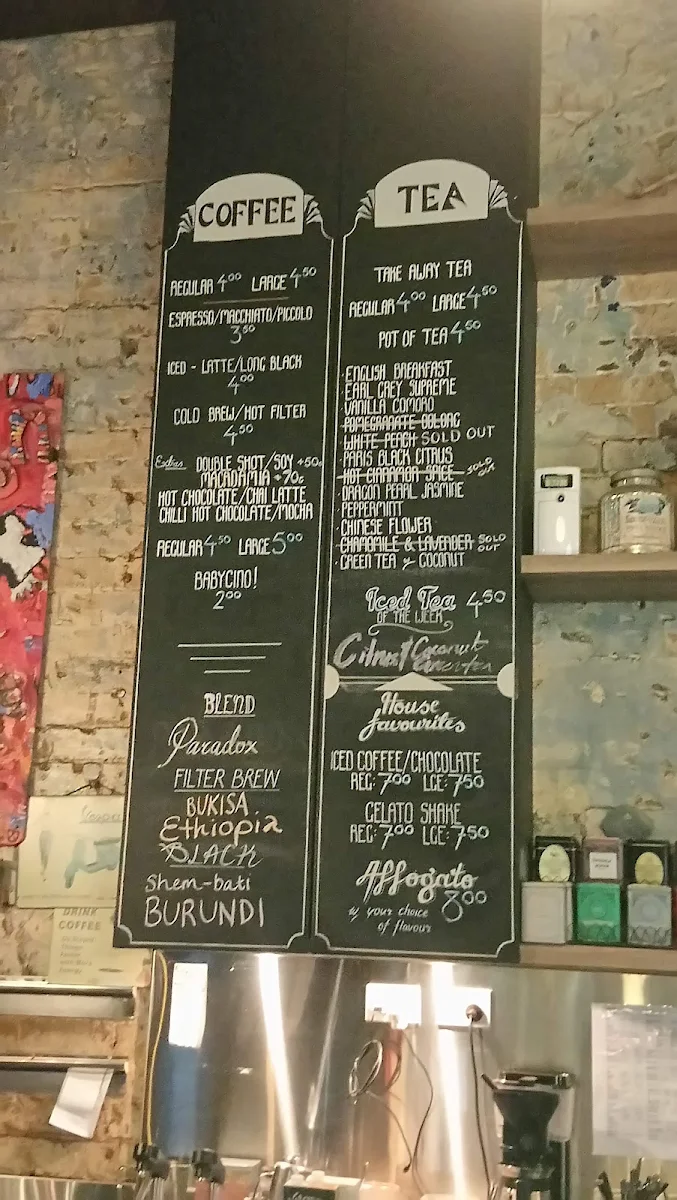 COFFEE
REGULAR 4.00 LARGE 4.50
ESPRESSO/MACCHIATO/PICCOLO
3.50
ICED - LATTE/LONG BLACK
4.00
COLD BREW/HOT FILTER
4.50
Extras DOUBLE SHOT/SOY +50c
MACADAMIA +70c
HOT CHOCOLATE/CHAI LATTE
CHILLI HOT CHOCOLATE/MOCHA
REGULAR 4.50 LARGE 5.00
BABYCINO!
2.00
BLEND
Paradox
FILTER BREW
BUKISA
Ethiopia
BLACK
Shem-bati
BURUNDI
TEA
TAKE AWAY TEA
REGULAR 4.00 LARGE 4.50
POT OF TEA 4.50
·ENGLISH BREAKFAST
·EARL GREY SUPREME
·VANILLA COMORO
·POMEGRANATE OOLONG
·WHITE PEACH SOLD OUT
·PARIS BLACK CITRUS
·HOT CINNAMON SPICE SOLD OUT
·DRAGON PEARL JASMINE
·PEPPERMINT
·CHINESE FLOWER
·CHAMOMILE & LAVENDER SOLD OUT
·GREEN TEA & COCONUT
Iced Tea 4.50
OF THE WEEK
Citrus/Coconut
Green tea
House
favourites
ICED COFFEE/CHOCOLATE
REG: 7.00 LGE: 7.50
GELATO SHAKE
REG: 7.00 LGE: 7.50
Affogato
8.00
w your choice
of flavour
Vespa
DRINK
COFFEE